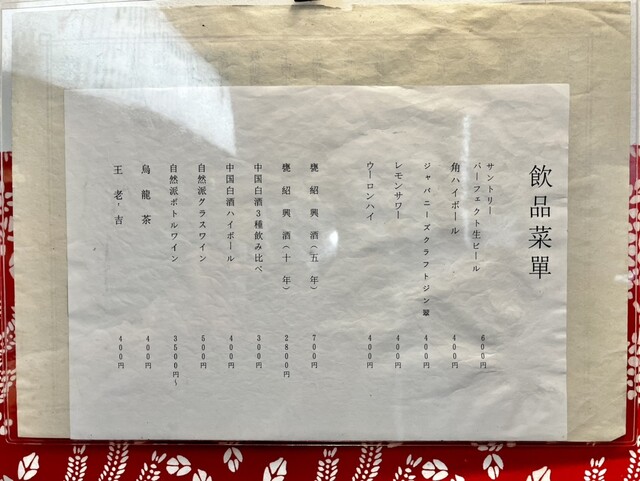 飲品菜單
サントリー
パーフェクト生ビール 600円
角ハイボール 400円
ジャパニーズクラフトジン翠 400円
レモンサワー 400円
ウーロンハイ 400円
甕紹興酒(五年) 700円
甕紹興酒(十年) 2800円
中国白酒3種飲み比べ 300円
中国白酒ハイボール 400円
自然派グラスワイン 500円
自然派ボトルワイン 3500円~
烏龍茶 400円
王老吉 400円